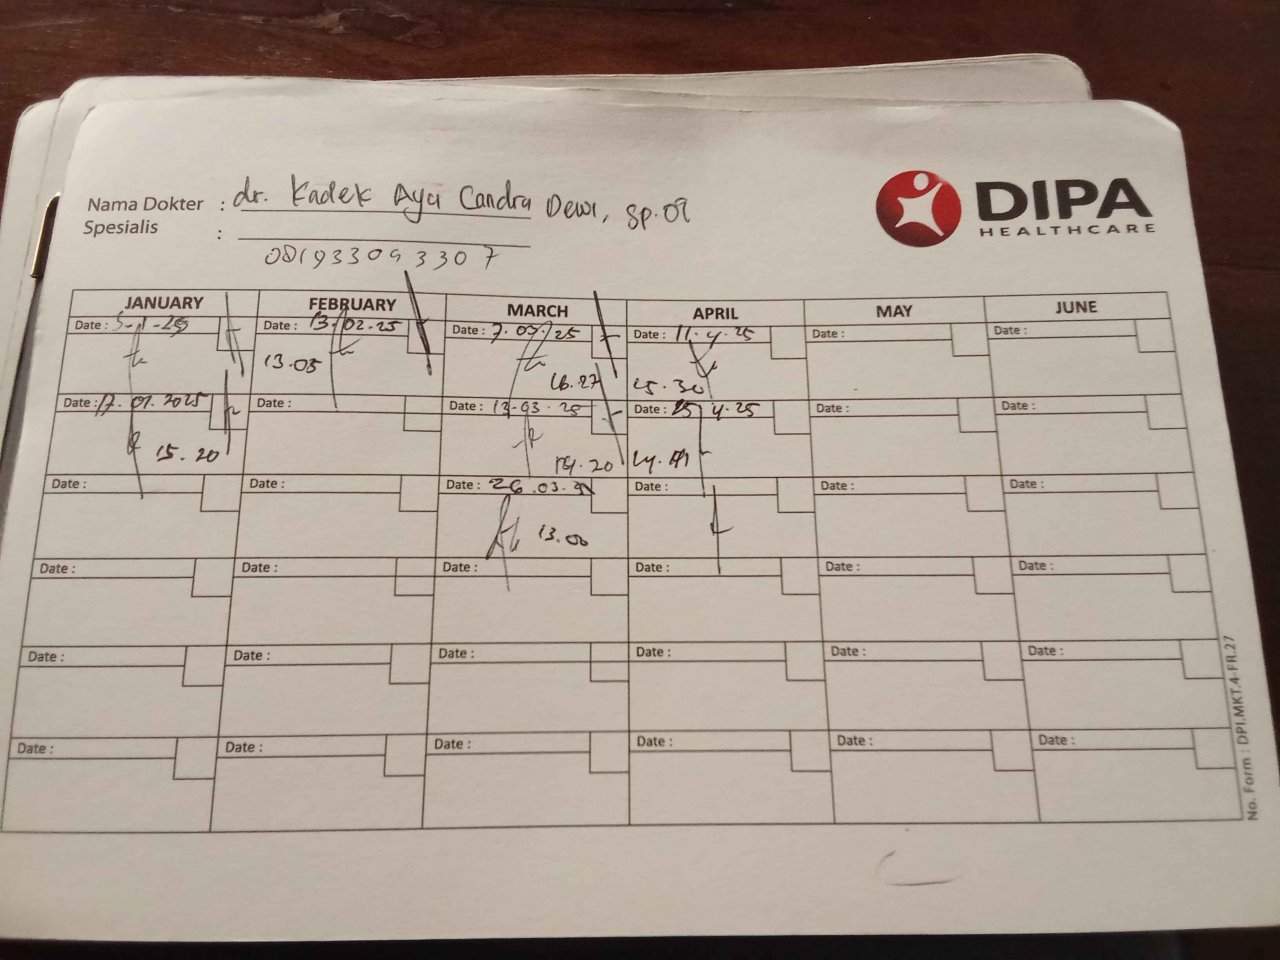 Nama Dokter : dr. Kadek Ayu Candra Dewi, Sp.
Spesialis :
081933093307
DIPA
HEALTHCARE
JANUARY FEBRUARY MARCH APRIL MAY JUNE
Date : Date : 13-02-25 Date : 7.03.25 Date : 11.4.25 Date : Date :
13.05 16.27 15.30
Date : 17.01.2025 Date : Date : 13-03-25 Date : 15.4.25 Date : Date :
15.20
Date : Date : Date : 26.03. Date : Date : Date :
13.00
Date : Date : Date : Date : Date : Date :
Date : Date : Date : Date : Date : Date :
Date : Date : Date : Date : Date : Date :
No. Form : DPI.MKT.4-FR.27